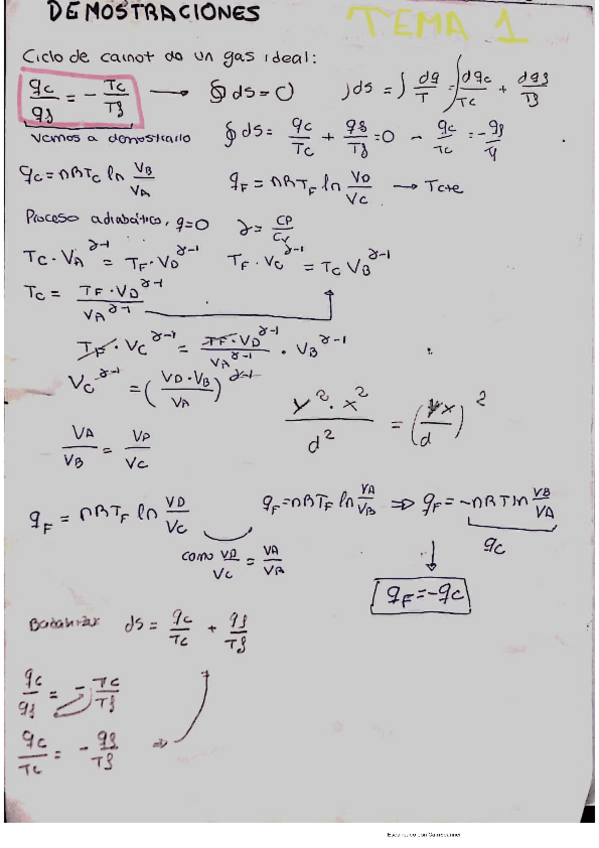 DEMOSTRACIONES
TEMA 1
Ciclo de carnot do un gas ideal:
qc/qf = - Tc/Tf → ∮ ds = 0 ∫ds = ∫ dq/T = ∫ dqc/Tc + dqf/Tf
Vamos a demostrarlo ∮ ds = qc/Tc + qf/Tf = 0 - qc/Tc = - qf/Tf
qc = nRTc ln VB/VA qF = nRTF ln VD/VC → Tcte
Proceso adiabático, q=0 γ = CP/CV
Tc · VA^γ-1 = TF · VD^γ-1 TF · VC^γ-1 = TC VB^γ-1
Tc = TF · VD^γ-1 / VA^γ-1
TF · VC^γ-1 = TF · VD^γ-1 / VA^γ-1 · VB^γ-1
VC^γ-1 = (VD · VB / VA)^γ-1
y² · x² / d² = (yx / d)²
VA/VB = VD/VC
qF = nRTF ln VD/VC qF = nRTF ln VA/VB ⇒ qF = -nRT ln VB/VA
como VD/VC = VA/VB
qc
qF = -qc
ds = qc/Tc + qf/Tf
qc/qf = - Tc/Tf
qc/Tc = - qf/Tf ⇒
Escaneado con CamScanner